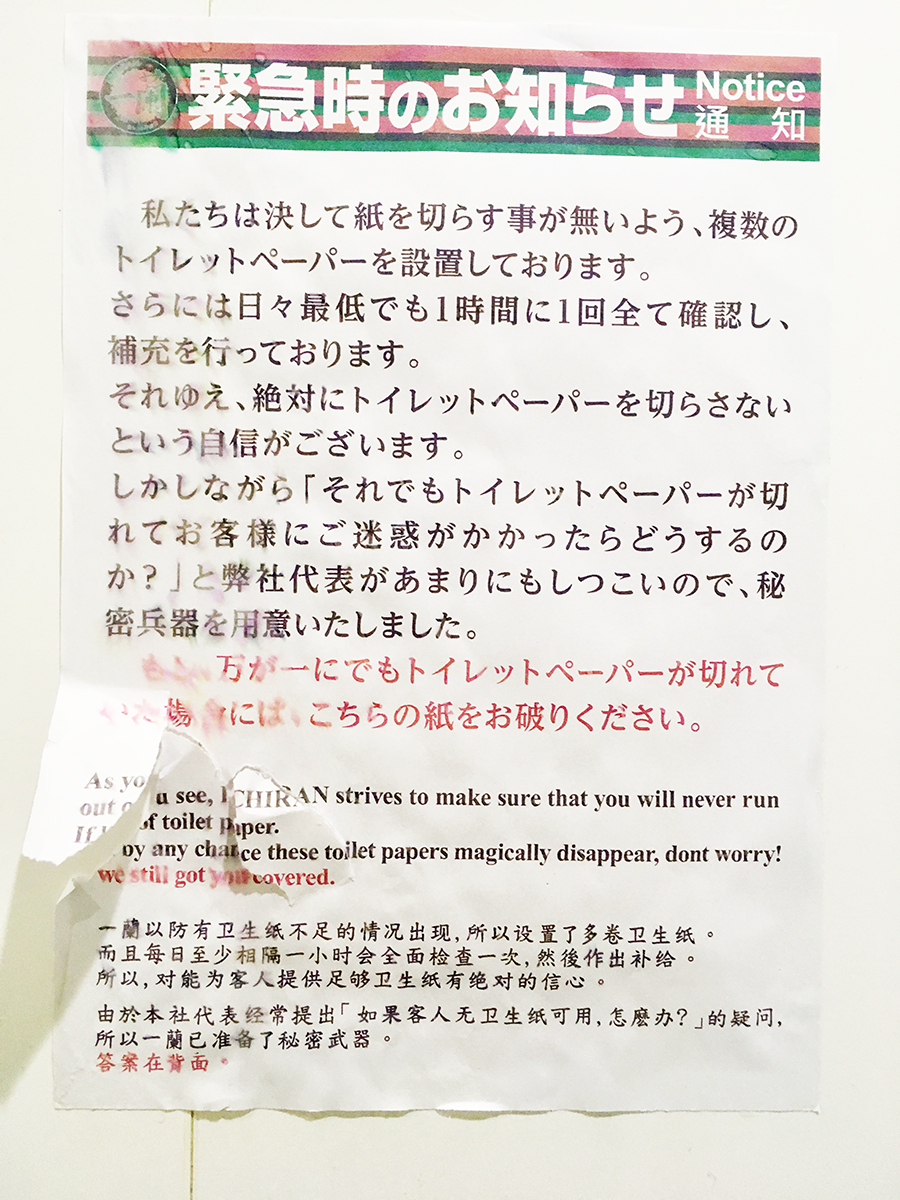 緊急時のお知らせ Notice 通 知
私たちは決して紙を切らす事が無いよう、複数の
トイレットペーパーを設置しております。
さらには日々最低でも1時間に1回全て確認し、
補充を行っております。
それゆえ、絶対にトイレットペーパーを切らさない
という自信がございます。
しかしながら「それでもトイレットペーパーが切
れてお客様にご迷惑がかかったらどうするの
か?」と弊社代表があまりにもしつこいので、秘
密兵器を用意いたしました。
万が一にでもトイレットペーパーが切れて
いた場合には、こちらの紙をお破りください。
As you see, ICHIRAN strives to make sure that you will never run
out of toilet paper.
If by any chance these toilet papers magically disappear, dont worry!
we still got you covered.
一蘭以防有卫生纸不足的情况出现,所以设置了多卷卫生纸。
而且每日至少相隔一小时会全面检查一次,然後作出补给。
所以,对能为客人提供足够卫生纸有绝对的信心。
由於本社代表经常提出「如果客人无卫生纸可用,怎麽办?」的疑问,
所以一蘭已准备了秘密武器。
答案在背面。